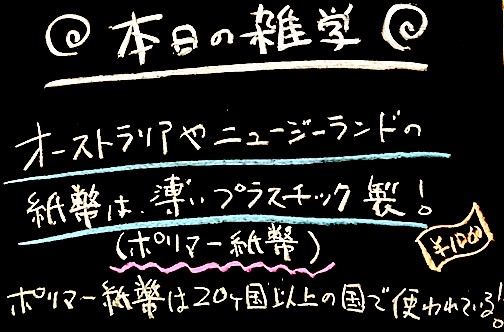 本日の雑学
オーストラリアやニュージーランドの
紙幣は、薄いプラスチック製!
(ポリマー紙幣)
¥1000
ポリマー紙幣は20ヶ国以上の国で使われている!